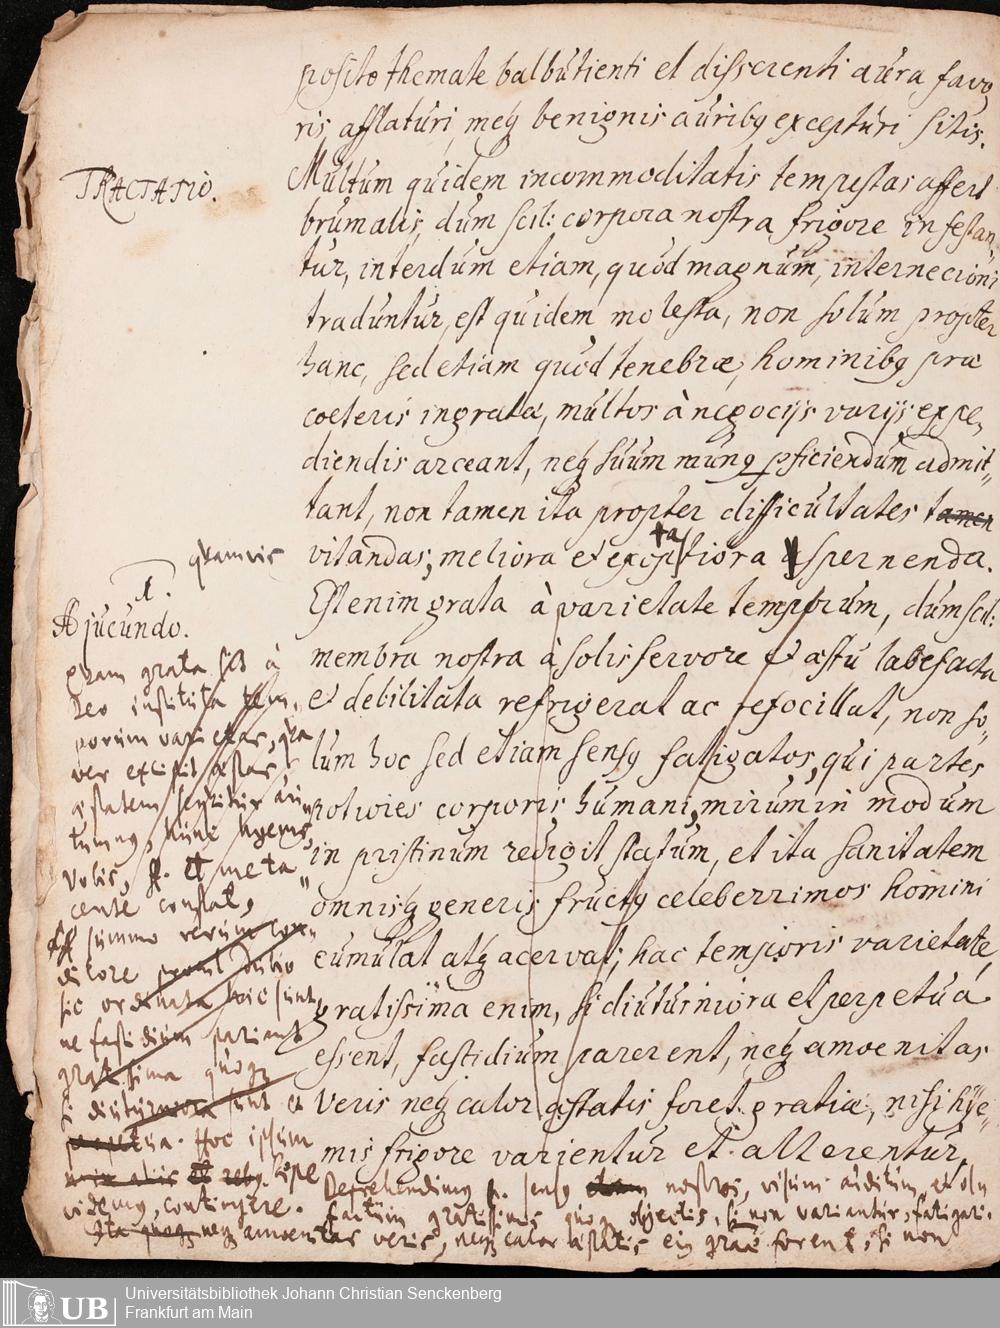 posito themate balbutienti et disserenti aura favo,
ris afflaturi, meq́ benignis auribq excepturi sitis.
TRACTATIO.
Multum quidem incommoditatis tempestas affert
brumalis, dum scil: corpora nostra frigore infestan,
tur, interdum etiam, quod magnum, internecioni
traduntur, est quidem molesta, non solum propter
hanc, sed etiam quòd tenebræ, hominibq præ
coeteris ingratæ, multos à negocijs varijs expe,
diendis arceant, neq́ suum munq pficiendum admit,,
tant, non tamen ita propter difficultates tamen
vitandas; meliora et aspernenda.
Est enim grata à varietate temporum, dum scil:
membra nostra à solis fervore et æstu labefacta
et debilitata refrigerat ac refocillat, non so,
lum hoc sed etiam sensq fatigatos, qui partes
potiores corporis humani, mirum in modum
in pristinum redigit statum, et ita sanitatem
omnisq́ generis fructq celeberrimos homini
cumulat atq́ acervat; hac temporis varietate,
gratissima enim, si diuturniora et perpetua
essent, fastidium parerent, neq́ amoenitas
veris neq́ calor æstatis foret gratiæ, nisi hye,
mis frigore varientur et alterentur,
quamvis
1.
A jucundo.
quam grata sit à
Deo instituta tem,
porum varietas,
ver æstas,
æstatem au,,
tumnq, hunc hyems,
et me ta,,
cente constat,
summo rerum con,,
ditore
sic ordinata hic sunt,
ne fastidium pariant
gratissima quoq́
si diuturniora sunt et
perpetua. Hoc ipsum
sæpe
videmq, contingere.
Deprehendimq sensq nostros, visum auditum,
factum gratissimis quoq́ objectis, si non variantur, fatigari.
Ita quoq́ neq́ amoenitas veris, neq́ calor æstatis forent, si non
Universitätsbibliothek Johann Christian Senckenberg
UB Frankfurt am Main